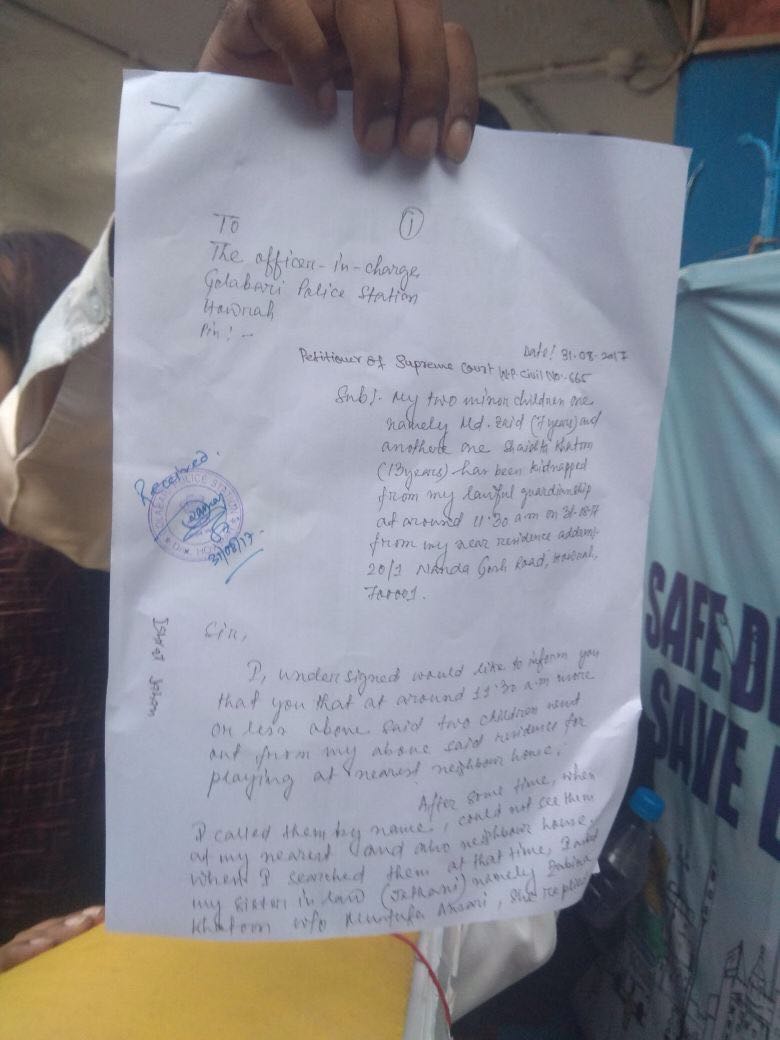 1
To
The officer-in-charge
Golabari Police Station
Howrah
Pin :-
Date: 31.08.2017
Petitioner of Supreme Court W.P. Civil No.-665
Sub:- My two minor children one
namely Md. Zaid (7 years) and
another one Shaista Khatoon
(13 years) has been kidnapped
from my lawful guardianship
at around 11:30 a.m on 31-08-17
from my near residence address:-
20/1 Nanda Gosh Road, Howrah,
Received.
31/08/17.
Ishrat Jahan
Sir,
I, undersigned would like to inform you
that you that at around 11:30 a.m more
or less above said two children went
out from my above said residence for
playing at nearest neighbour house.
After some time, when
I called them by name, could not see them
at my nearest and also neighbour house.
when I searched them at that time, I asked
my sister in law (Jethani) namely Sabina
Khatoon w/o Mustafa Ansari, she replied
SAFE D
SAVE